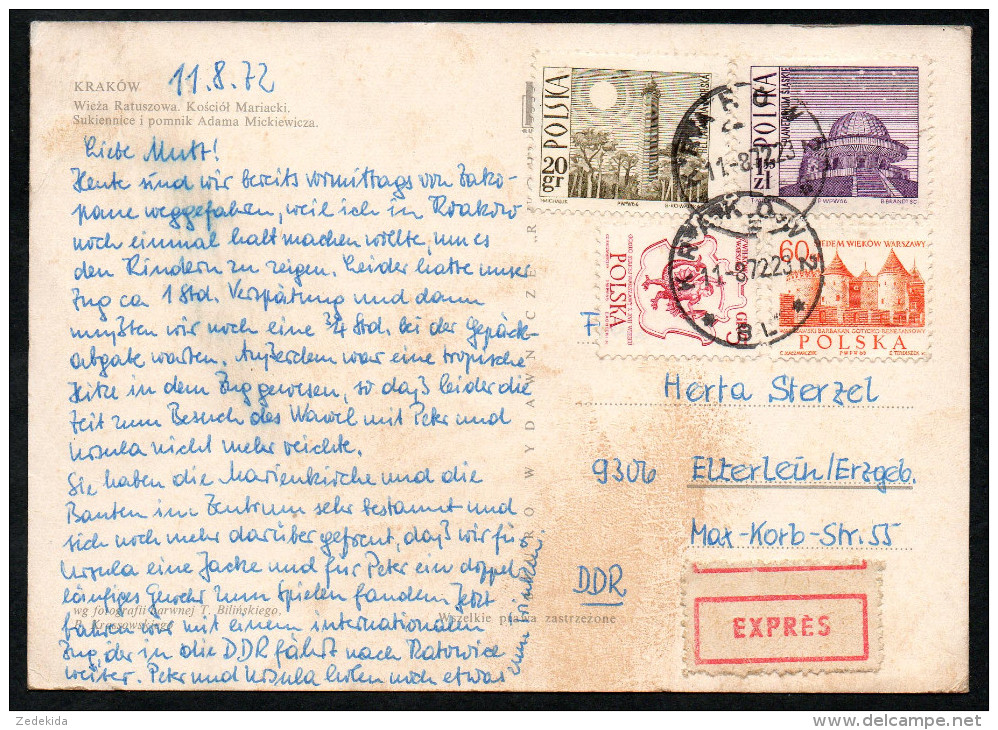 KRAKÓW
Wieża Ratuszowa. Kościół Mariacki.
Sukiennice i pomnik Adama Mickiewicza.
11.8.72
Liebe Mutt!
Heute sind wir bereits vormittags von Zako-
pane weggefahren, weil ich in Krakow
noch einmal halt machen wollte, um es
den Kindern zu zeigen. Leider hatte unser
Zug ca 1 Std. Verspätung und dann
mußten wir noch eine 3/4 Std. bei der Gepäck-
abgabe warten. Außerdem war eine tropische
Hitze in dem Zug gewesen, so daß leider die
Zeit zum Besuch des Wawel mit Peter und
Ursula nicht mehr reichte.
Sie haben die Marienkirche und die
Bauten im Zentrum sehr bestaunt und
sich noch mehr darüber gefreut, daß wir für
Ursula eine Jacke und für Peter ein doppel-
läufiges Gewehr zum Spielen fanden. Jetzt
fahren wir mit einem internationalen
Zug, der in die DDR fährt nach Katowice
weiter. Peter und Ursula holen noch etwas
zum Trinken.
wg fotografii barwnej T. Bilińskiego,
B. Krassowskiego
Wszelkie prawa zastrzeżone
RO WYDAWNICZE "R
POLSKA
20 gr
T. MICHALIK PWPW 66
POLSKA
PLANETARIUM ŚLĄSKIE
zł
T. MICHALIK B-WPW 66 B. BRANDT 60
POLSKA
GR
60 SIEDEM WIEKÓW WARSZAWY
BARBAKAN
POLSKA
KRAKÓW 2
11-8 72 23
KRAKÓW 2
11-8 72 23
* 8 L *
Herta Sterzel
9306 Elterlein/Erzgeb.
Max-Korb-Str. 55
DDR
EXPRÈS
Zedekida
www.delcampe.net